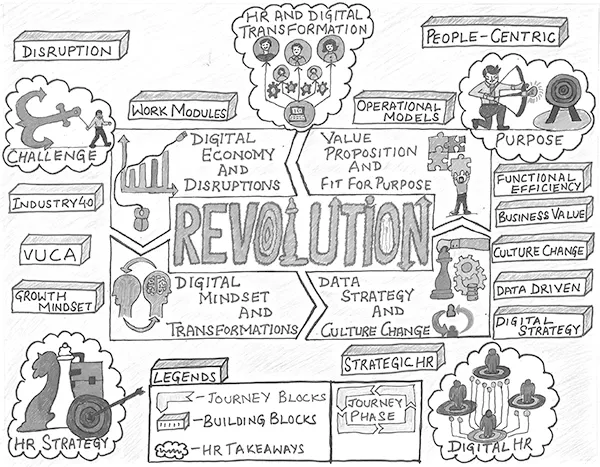 HR AND DIGITAL
TRANSFORMATION
DISRUPTION
PEOPLE-CENTRIC
WORK MODULES
OPERATIONAL
MODELS
CHALLENGE
DIGITAL
ECONOMY
AND
DISRUPTIONS
VALUE
PROPOSITION
AND
FIT FOR PURPOSE
PURPOSE
FUNCTIONAL
EFFICIENCY
INDUSTRY 4.0
BUSINESS VALUE
REVOLUTION
VUCA
CULTURE CHANGE
GROWTH
MINDSET
DIGITAL
MINDSET
AND
TRANSFORMATIONS
DATA
STRATEGY
AND
CULTURE CHANGE
DATA DRIVEN
DIGITAL
STRATEGY
HR STRATEGY
LEGENDS
JOURNEY BLOCKS
BUILDING BLOCKS
HR TAKEAWAYS
STRATEGIC HR
JOURNEY
PHASE
DIGITAL HR